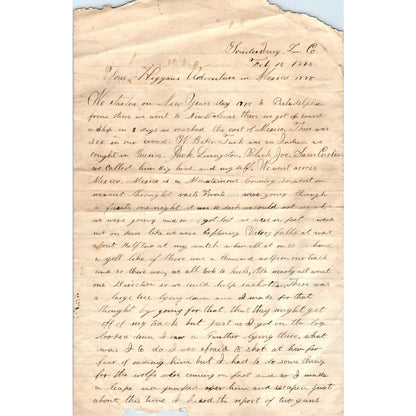 Soudersburg Lan Co
Feb 15 1888
Tom Higgans Adventure in Mexico 1888
We started on New Years day 1888 to Philadelphia
from there we went to New Orleans then we got on board
a ship in 2 days we reached the cost of Mexico. There was
six in our crowd. W Baker Turk was an Indian we
caught in Mexico. Jack Livingston, Black Joe, Sam Carter
we called him big hand, and my self. We went across
Mexico. Mexico is a Mountainous Country in about
we went through vast forests were going through
a forest one night it was so dark we could not see where
we were going and so got lost we were on foot were
not on mules like we were Exploring Victory falls it was
about half two at my watch when all at once I heard
a yell like if there was a thousand wolves on our track
and so thin was we all took to heels, we nearly all went
one Direction so we could help each other. There was
a large tree lying down and I made for that
thought by going for that, that they might get
off of my track but just as I got on the log
looked down I saw a Panther lying there, what
was I to do I was afraid to shot at him for
fear of missing him but I had to do some thing
for the wolfs also coming on foot and so I made
a leape and jumped over him and escaped just
about this time I heard the report of two guns